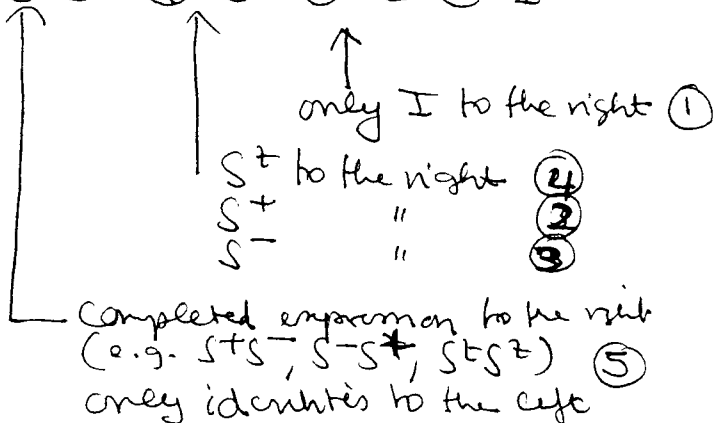 only I to the right ①
S^z to the right ④
S^+ " ②
S^- " ③
completed expression to the right
(e.g. S^+S^-, S^-S^+, S^zS^z) ⑤
only identities to the left